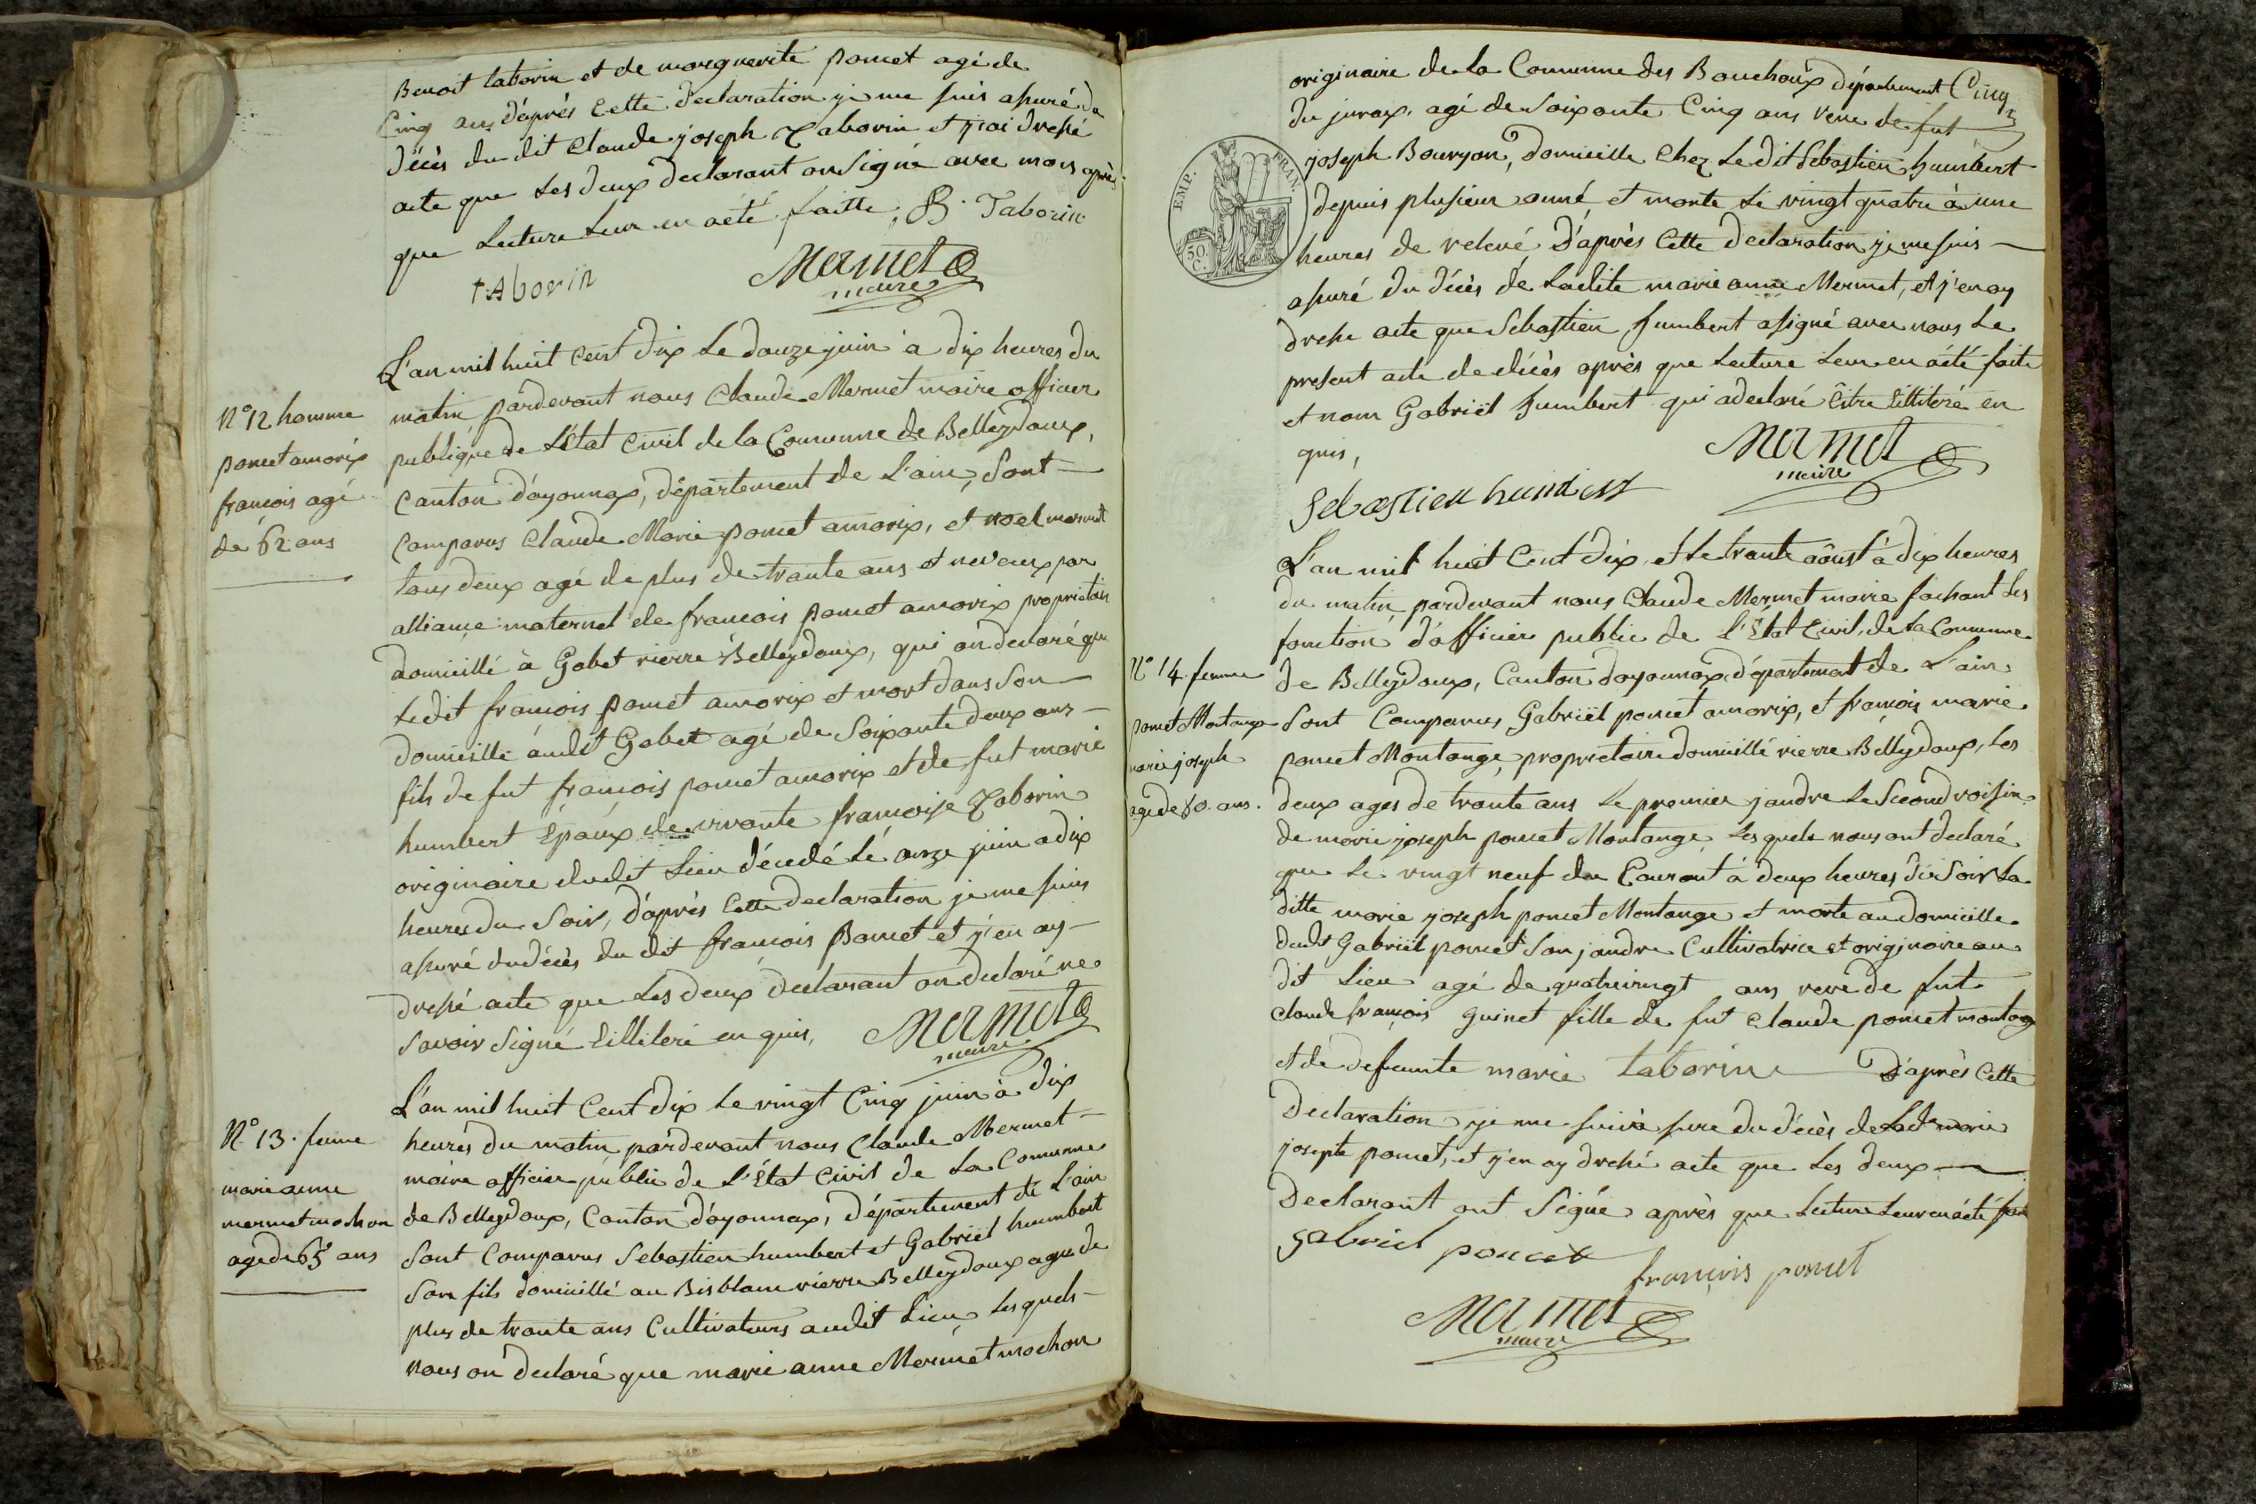 Benoit taborin et de marguerite poncet agé de
Cinq ans d'après Cette declaration je me suis assuré du
décès du dit Claude joseph Taborin et j'ai dressé
acte que les deux declarant on Signé avec nous après
que Lecture Leur en aété faitte. B. Taborin
tAborin
Mermet
maire
N° 12 homme
poncet amorix
francois agé
de 62 ans
L'an mil huit Cent dix Le douze juin à dix heures du
matin pardevant nous Claude Mermet maire officier
publique de L'État Civil de la Commune de Belleydoux,
Canton d'oyonnax, département de L'ain, Sont
Comparus Claude Marie poncet amorix, et noel mermet
tous deux agé de plus de trante ans et neveux par
alliance maternel de francois poncet amorix propriétaire
domicillé à Gobet rierre Belleydoux, qui on declaré que
Ledit francois poncet amorix et mort dans Son
domicille audit Gobet agé de Soixante deux ans
fils de fut françois poncet amorix et de fut marie
humbert Epoux de vivante françoise Taborin
originaire dudit Lieu décedé Lé onze juin a dix
heures du Soir, d'après Cette declaration je me suis
assuré du décès du dit francois Poncet et j'en ay
dressé acte que Les deux declarant on declaré ne
Savoir Signé Lilliteré en quis,
Mermet
maire
N.° 13. femme
marie anne
mermet mochon
agé de 65 ans
L'an mil huit Cent dix Le vingt Cinq juin à dix
heures du matin pardevant nous Claude Mermet
maire officier public de L'État Civil de La Commune
de Belleydoux, Canton d'oyonnax, département de L'ain
Sont Comparus Sebastien humbert et Gabriël humbert
Son fils domicillé au Bisblanc rierre Belleydoux agé de
plus de trante ans Cultivateurs audit Lieu, Lesquels
nous on declaré que marie anne Mermet mochon
originaire de La Commune des Bouchoux département
du jurax, agé de Soixante Cinq ans veve de fut
joseph Bouryon, domicille Chez Ledit Sebastien humbert
depuis plusieur anné et morte Le vingt quatre à une
heures de relevé, D'après Cette declaration je me suis
assuré du décès dé Ladite marie anne Mermet, et j'en ay
dresse acte que Sebastien humbert asigné avec nous Le
present acte de décès après que Lecture Leur en aété faite
et nom Gabriël humbert qui adeclaré Être Lilliteré en
quis,
EMP. FRAN.
50.
C.
Cinq
Mermet
maire
Sebastien humbert
L'an mil huit Cent dix, et Le trante aôust à dix heures
du matin pardevant nous Claude Mermet maire faisant Les
fonction d'officier public de L'État Civil de La Commune
N° 14. femme
poncet Montange
marie joseph
agé de 80. ans.
de Belleydoux, Canton d'oyonnax département de L'ain
Sont Comparus Gabriël poncet amorix, et françois marie
poncet Montange, propriétaire domicillé rierre Belleydoux, Les
deux agés de trante ans Le premier jandre Le Second voisin
de marie joseph poncet Montange Lesquels nous ont declaré
que Le vingt neuf du Courant à deux heures du Soir La
ditte marie joseph poncet Montange et morte au domicille
dudit Gabriël poncet Son jandre Cultivatrice et originaire au
dit Lieu agé de quatrevingt ans veve de fut
Claude françois Guinet fille de fut Claude poncet montange
et de defunte marie taborin D'après Cette
declaration je me suis assure du décès de Ladte marie
josepte poncet, et j'en ay dressé acte que Les deux
declarant ont Signé après que Lecture Leur en aété faite
gabriel poncet
françois poncet
Mermet
maire